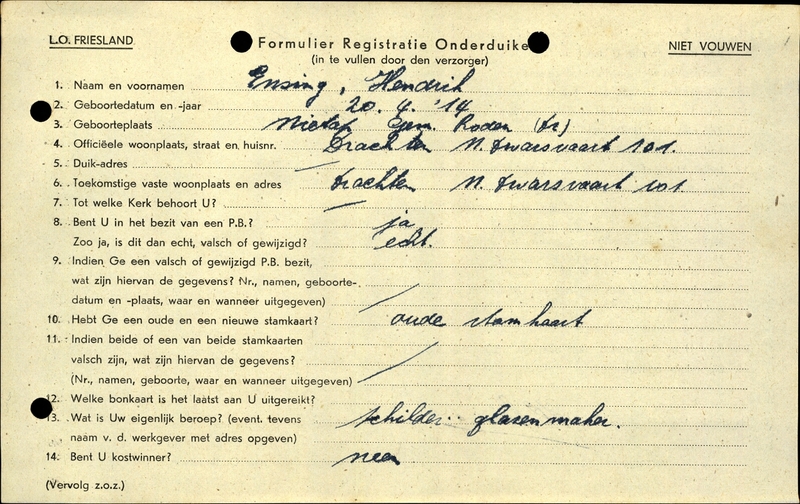 L.O. FRIESLAND
Formulier Registratie Onderduike
NIET VOUWEN
(in te vullen door den verzorger)
1. Naam en voornamen Ensing, Hendrik
2. Geboortedatum en -jaar 20. 4. '14
3. Geboorteplaats Nietap Gem. Roden (Dr)
4. Officiëele woonplaats, straat en huisnr. Drachten N. Dwarsvaart 101.
5. Duik-adres —
6. Toekomstige vaste woonplaats en adres Drachten N. Dwarsvaart 101
7. Tot welke Kerk behoort U? —
8. Bent U in het bezit van een P.B.? ja
Zoo ja, is dit dan echt, valsch of gewijzigd? echt.
9. Indien Ge een valsch of gewijzigd P.B. bezit,
wat zijn hiervan de gegevens? Nr., namen, geboorte-
datum en -plaats, waar en wanneer uitgegeven) /
10. Hebt Ge een oude en een nieuwe stamkaart? oude stamkaart
11. Indien beide of een van beide stamkaarten
valsch zijn, wat zijn hiervan de gegevens?
(Nr., namen, geboorte, waar en wanneer uitgegeven) /
12. Welke bonkaart is het laatst aan U uitgereikt?
13. Wat is Uw eigenlijk beroep? (event. tevens schilder glazenmaker.
naam v. d. werkgever met adres opgeven)
14. Bent U kostwinner? neen
(Vervolg z.o.z.)